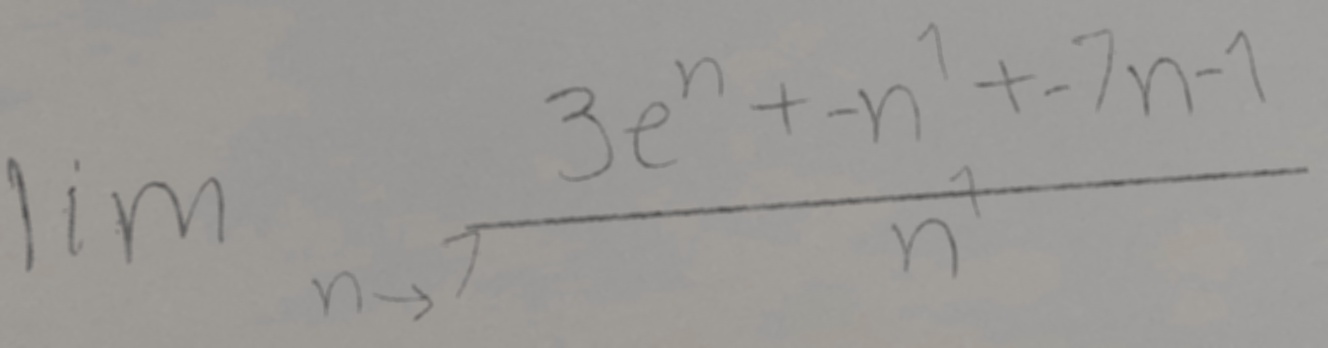 \lim_{n \to 7} \frac{3e^n + -n^1 + -7n - 1}{n^1}